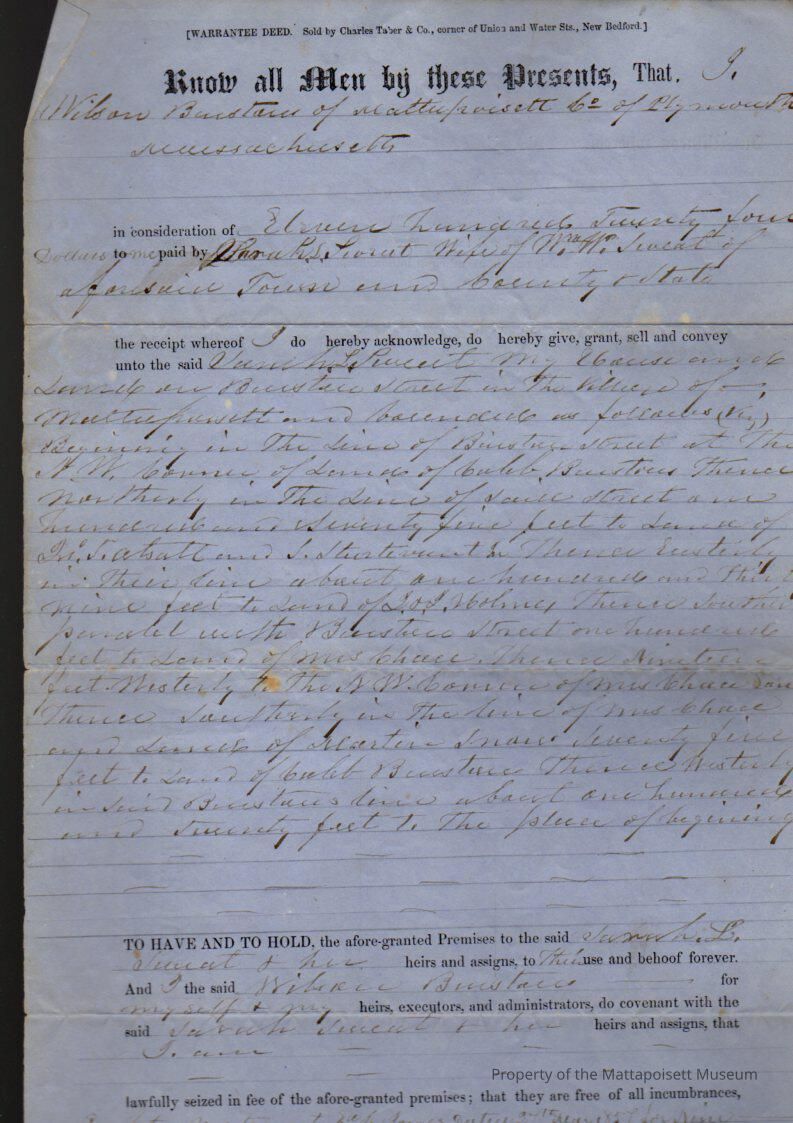 [WARRANTEE DEED. Sold by Charles Taber & Co., corner of Union and Water Sts., New Bedford.]
Know all Men by these Presents, That, I,
Wilson Barstow of Mattapoisett Co of Plymouth
Massachusetts
in consideration of Eleven hundred Twenty four
Dollars to me paid by Sarah L. Sweat Wife of Wm W. Sweat of
aforesaid Town and County & State
the receipt whereof I do hereby acknowledge, do hereby give, grant, sell and convey
unto the said Sarah L. Sweat my House and
Land on Barstow Street in the Village of
Mattapoisett and bounded as follows (viz)
Begining in The Line of Barstow Street at The
N. W. Corner of Land of Caleb Barstow Thence
Northerly in The Line of said Street one
hundred and Seventy five feet to Land of
and S. Sturtevant Thence Easterly
in their line about one hundred and
nine feet to Land of Holmes Thence
paralel with Barstow Street one hundred
feet to Land of Mrs Chace. Thence Nineteen
feet Westerly to The N W. Corner of Mrs Chace
Thence Southerly in The line of Mrs Chace
and Land of Martin Snow Seventy five
feet to Land of Caleb Barstow Thence Westerly
in said Barstows line about one hundred
and Twenty feet to The place of begining
TO HAVE AND TO HOLD, the afore-granted Premises to the said Sarah. L.
Sweat & her heirs and assigns, to Their use and behoof forever.
And I the said Wilson Barstow for
myself & my heirs, executors, and administrators, do covenant with the
said Sarah Sweat & her heirs and assigns, that
I am
Property of the Mattapoisett Museum
lawfully seized in fee of the afore-granted premises; that they are free of all incumbrances,